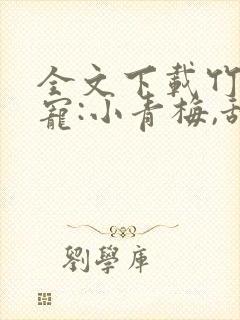 全文下載竹
寵:小青梅,
劉學庫